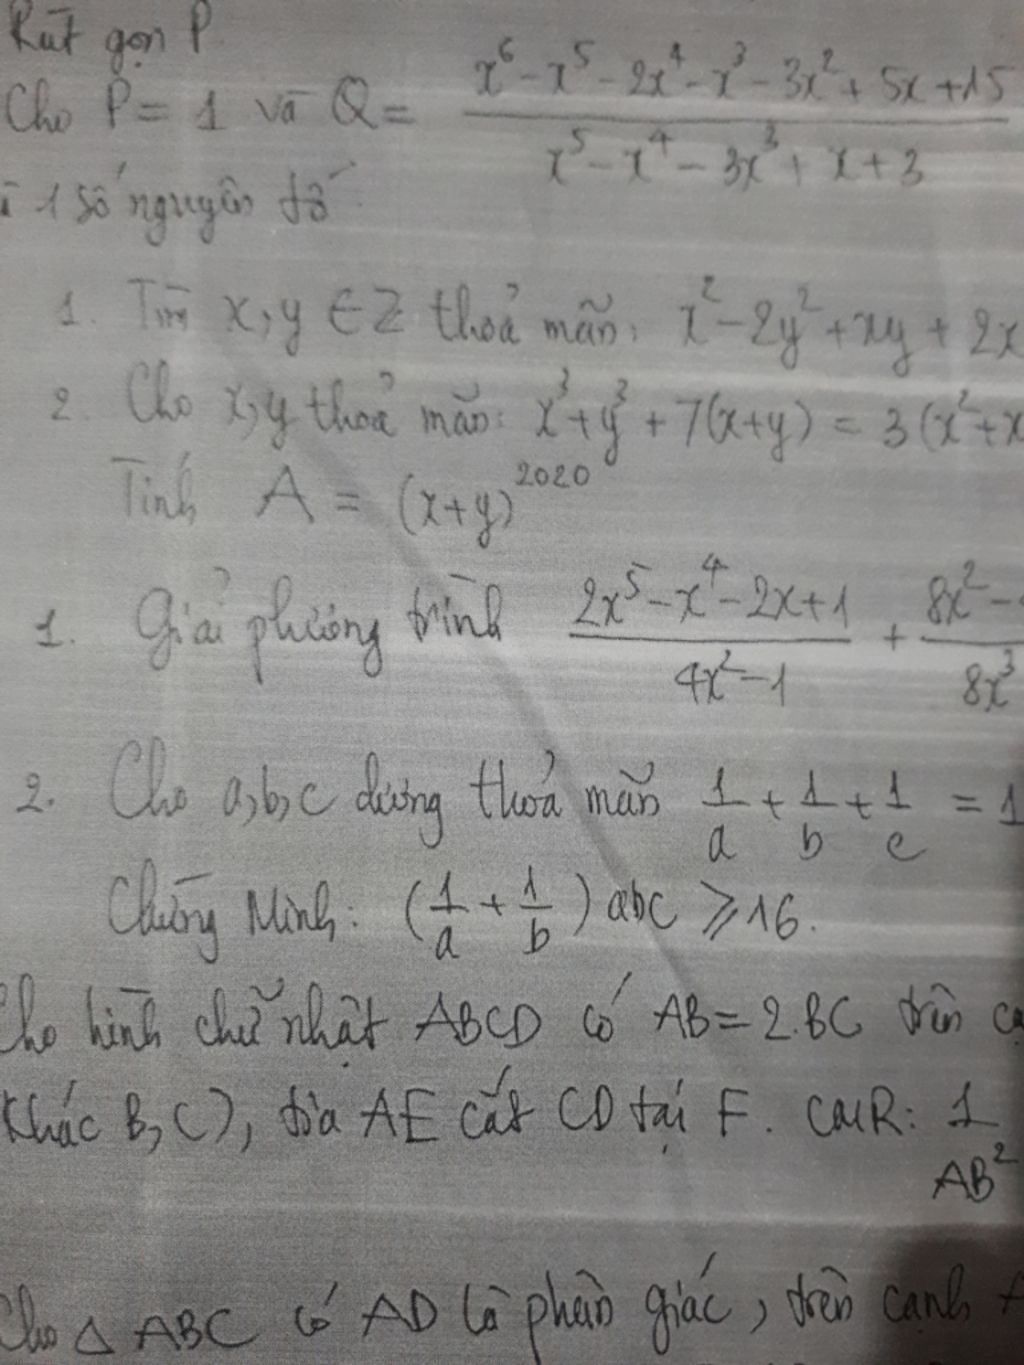 Rút gọn P
Cho P = 1 và Q = \frac{x^6 - x^5 - 2x^4 - x^3 - 3x^2 + 5x + 15}{x^5 - x^4 - 3x^3 + x + 3}
1 số nguyên tố
1. Tìm x, y ∈ Z thoả mãn: x² - 2y² + xy + 2x
2. Cho x, y thoả mãn: x³ + y³ + 7(x+y) = 3(x² + x
Tính A = (x+y)^{2020}
1. Giải phương trình \frac{2x^5 - x^4 - 2x + 1}{4x^2 - 1} + \frac{8x^2 -}{8x^3}
2. Cho a, b, c dương thoả mãn \frac{1}{a} + \frac{1}{b} + \frac{1}{c} = 1
Chứng Minh: (\frac{1}{a} + \frac{1}{b}) abc ⩾ 16.
Cho hình chữ nhật ABCD có AB = 2.BC trên cạ
khác B, C), tia AE cắt CD tại F. CMR: \frac{1}{AB^2}
Cho Δ ABC có AD là phân giác, trên cạnh A